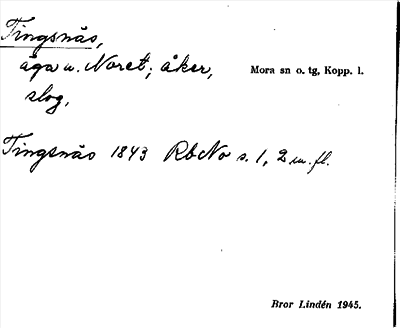 Tingsnäs,
äga u. Noret; åker, Mora sn o. tg, Kopp. l.
slog,
Tingsnäs 1843 RbNo s. 1, 2 m. fl.
Bror Lindén 1945.